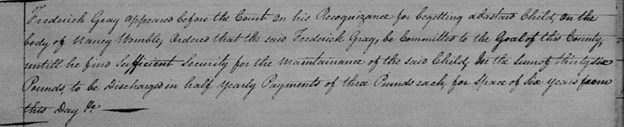 Frederick Gray appeared before the Court on his Recognizance for begetting a bastard Child, on the
body of Nancy Womble, Ordered that the said Frederick Gray, be Committed to the Goal of this County,
untill he find Sufficient Security for the Maintainance of the said Child, in the Sum of thirty six
Pounds, to be Discharged in half yearly Payments of three Pounds each, for Space of Six Years from
this Day &c